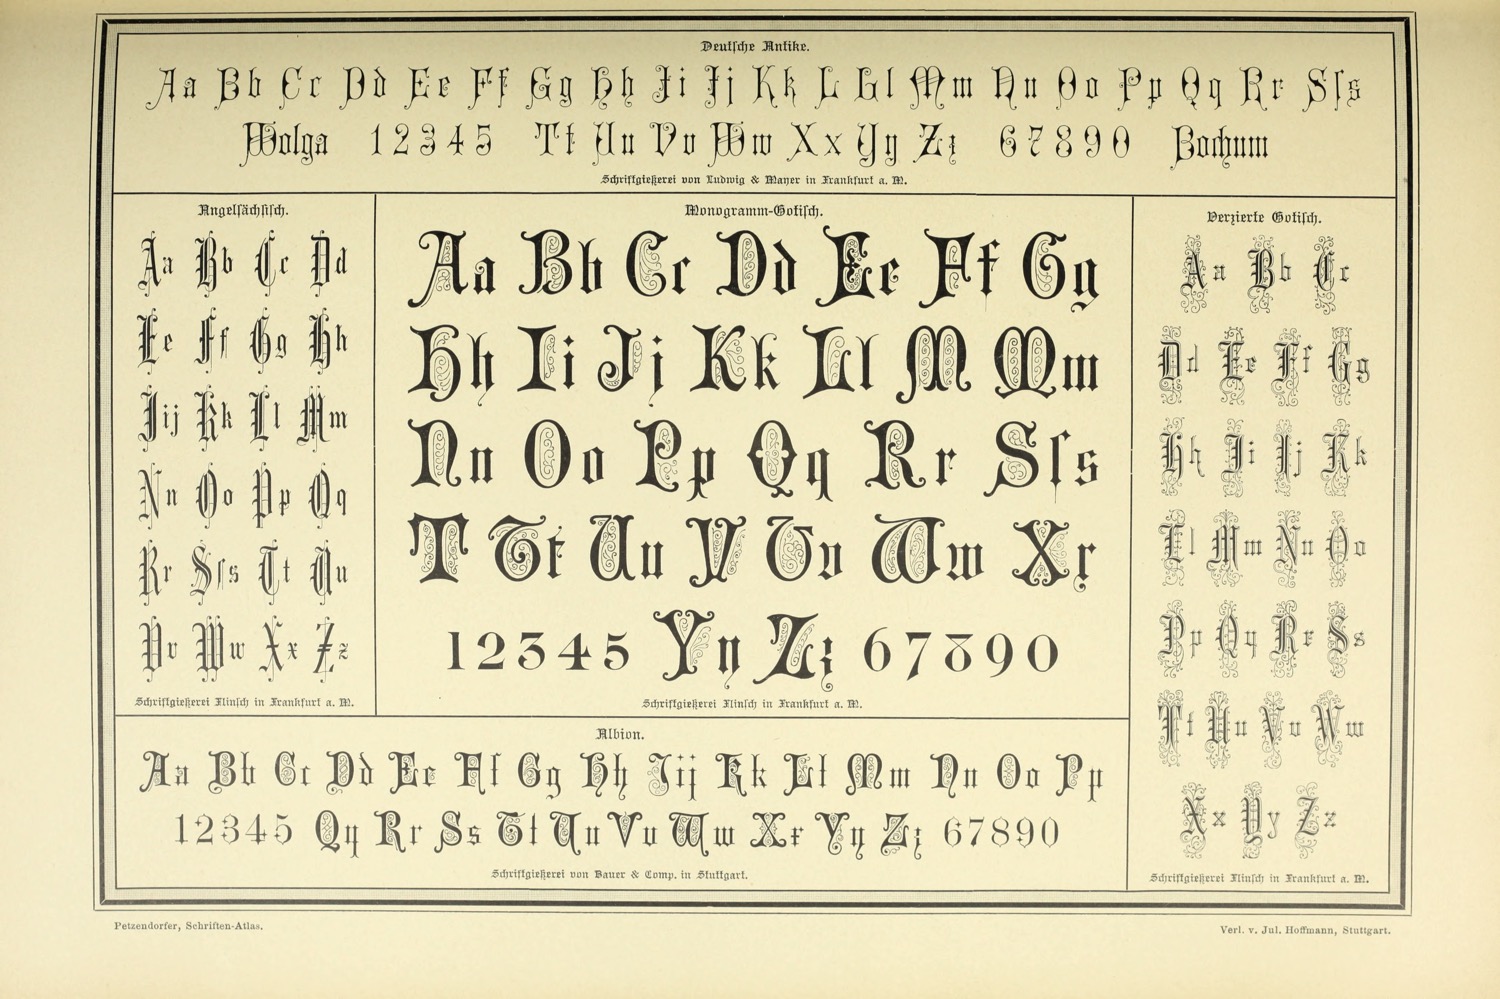 Deutſche Antike.
Aa Bb Cc Dd Ee Ff Gg Hh Ii Jj Kk L Ll Mm Nn Oo Pp Qq Rr Sſs
Wolga 12345 Tt Uu Vv Ww Xx Yy Zz 67890 Bochum
Schriftgießerei von Ludwig & Mayer in Frankfurt a. M.
Angelſächſiſch.
Aa Bb Cc Dd
Ee Ff Gg Hh
Jij Kk Ll Mm
Nn Oo Pp Qq
Rr Sſs Tt Uu
Vv Ww Xx Zz
Schriftgießerei Flinſch in Frankfurt a. M.
Monogramm-Gotiſch.
Aa Bb Cc Dd Ee Ff Gg
Hh Ii Jj Kk Ll M Mm
Nn Oo Pp Qq Rr Sſs
T Tt Uu V Vv Ww Xx
12345 Yy Zz 67890
Schriftgießerei Flinſch in Frankfurt a. M.
Verzierte Gotiſch.
Aa Bb Cc
Dd Ee Ff Gg
Hh Ii Jj Kk
Ll Mm Nn Oo
Pp Qq Rr Ss
Tt Uu Vv Ww
Xx Yy Zz
Schriftgießerei Flinſch in Frankfurt a. M.
Albion.
Aa Bb Cc Dd Ee Ff Gg Hh Jij Kk Ll Mm Nn Oo Pp
12345 Qq Rr Ss Tt Uu Vv Ww Xx Yy Zz 67890
Schriftgießerei von Bauer & Comp. in Stuttgart.
Petzendorfer, Schriften-Atlas.
Verl. v. Jul. Hoffmann, Stuttgart.